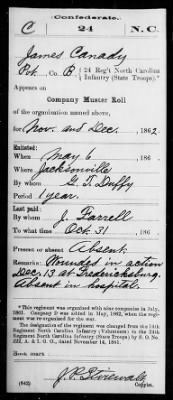 Confederate.
C 24 N.C.
James Canady
Pvt., Co. B, 24 Reg't North Carolina
Infantry (State Troops).*
Appears on
Company Muster Roll
of the organization named above,
for Nov. and Dec., 1862.
Enlisted:
When May 6, 186
Where Jacksonville
By whom G. T. Duffy
Period 1 year.
Last paid:
By whom J. Farrell
To what time Oct. 31, 186
Present or absent Absent
Remarks: Wounded in action
Dec. 13 at Fredericksburg.
Absent in hospital.
*This regiment was organized with nine companies in July,
1861. Company D was added in May, 1862, when the regi-
ment was re-organized for the war.
The designation of the regiment was changed from the 14th
Regiment North Carolina Infantry (Volunteers) to the 24th
Regiment North Carolina Infantry (State Troops) by S. O. No.
222, A. & I. G. O., dated November 14, 1861.
Book mark:
(642)
Copyist.